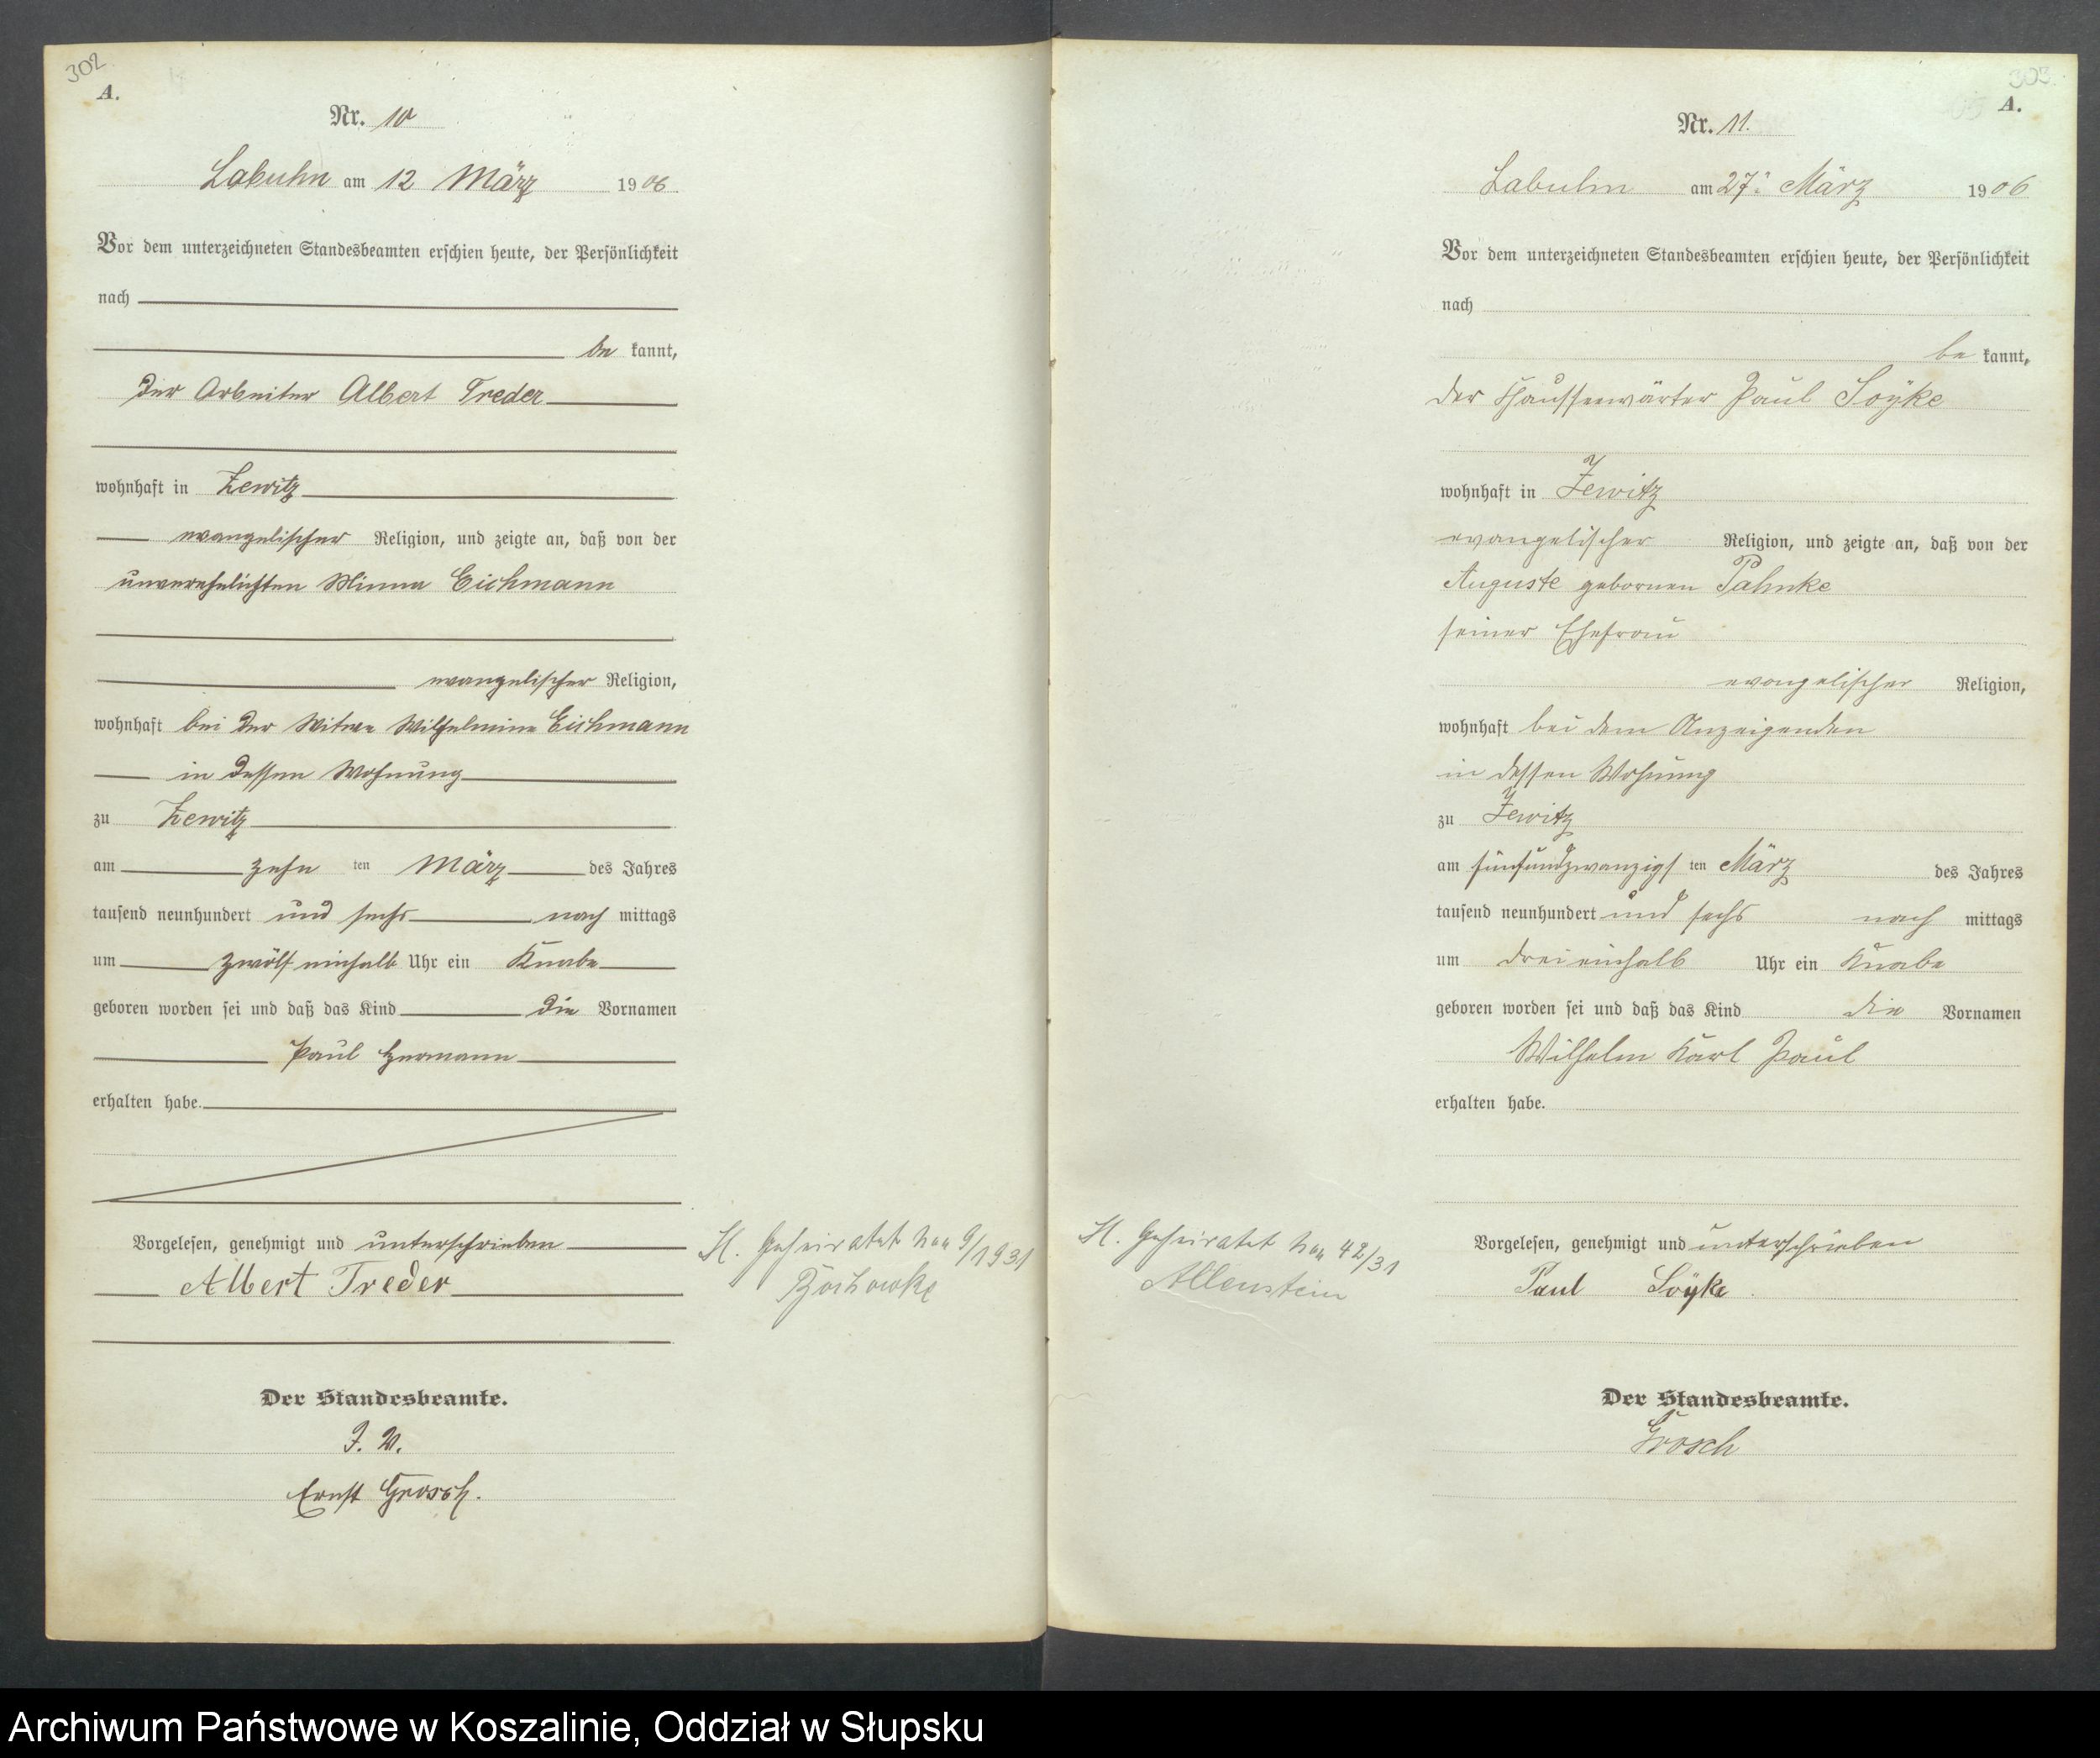 302
A.
Nr. 10
Labuhn am 12 März 1906
Vor dem unterzeichneten Standesbeamten erschien heute, der Persönlichkeit
nach
be kannt,
der Arbeiter Albert Treder
wohnhaft in Zewitz
evangelischer Religion, und zeigte an, daß von der
unverehelichten Minna Eichmann
evangelischer Religion,
wohnhaft bei der Witwe Wilhelmine Eichmann
in dessen Wohnung
zu Zewitz
am zehn ten März des Jahres
tausend neunhundert und sechs nach mittags
um zwölf einhalb Uhr ein Knabe
geboren worden sei und daß das Kind die Vornamen
Paul Hermann
erhalten habe.
Vorgelesen, genehmigt und unterschrieben
Albert Treder
Der Standesbeamte.
J. V.
Ernst Grosch.
H. Geheiratet 9/1931
303
A.
Nr. 11.
Labuhn am 27. März 1906
Vor dem unterzeichneten Standesbeamten erschien heute, der Persönlichkeit
nach
be kannt,
der Chausseewärter Paul Soÿke
wohnhaft in Zewitz
evangelischer Religion, und zeigte an, daß von der
Auguste gebornen Pahnke
seiner Ehefrau
evangelischer Religion,
wohnhaft bei dem Anzeigenden
in dessen Wohnung
zu Zewitz
am fünfundzwanzigs ten März des Jahres
tausend neunhundert und sechs nach mittags
um drei einhalb Uhr ein Knabe
geboren worden sei und daß das Kind die Vornamen
Wilhelm Karl Paul
erhalten habe.
Vorgelesen, genehmigt und unterschrieben
Paul Soÿke
Der Standesbeamte.
Grosch
H. Geheiratet 42/31
Allenstein
Archiwum Państwowe w Koszalinie, Oddział w Słupsku